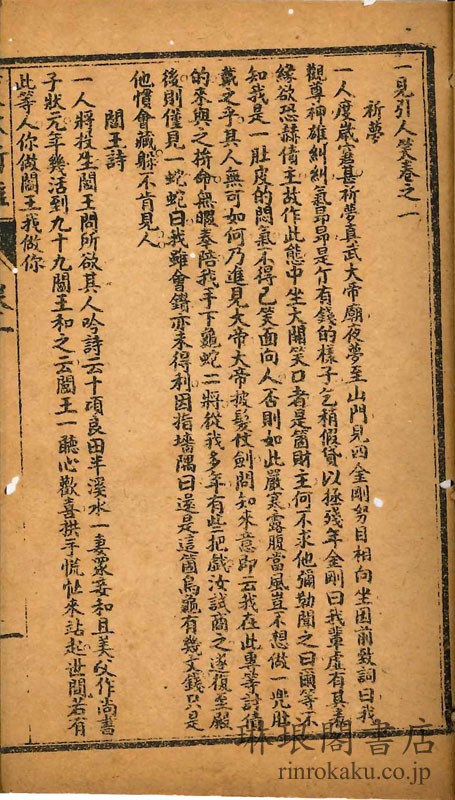 一見引人笑卷之一
祈夢
一人度歲窘甚祈夢真武大帝廟夜夢至山門見四金剛努目相向坐因前致詞曰我
觀尊神雄糾糾氣昂昂是个有錢的樣子乞稍假貸以拯殘年金剛曰我輩虛有其表
緣欲恐赫債主故作此態中坐大開笑口者是箇財主何不求他彌勒聞之曰爾等不
知我是一肚皮的悶氣不得已笑面向人否則如此嚴寒露腹當風豈不想做一兜肚
戴之乎其人無可如何乃進見大帝大帝披髮仗劍問知來意即云我在此專等討債
的來與之拚命無暇奉陪我手下龜蛇二將從我多年有些把戲汝試商之遂復至殿
後則僅見一蛇蛇曰我雖會鑽亦未得利因指墻隅曰還是這箇烏龜有幾文錢只是
他慣會藏躲不肯見人
閻王詩
一人將投生閻王問所欲其人吟詩云十頃良田半溪水一妻眾妾和且美父作尚書
子狀元年幾活到九十九閻王和之云閻王一聽心歡喜拱手慌忙來站起世間若有
此等人你做閻王我做你
琳琅閣書店
rinrokaku.co.jp